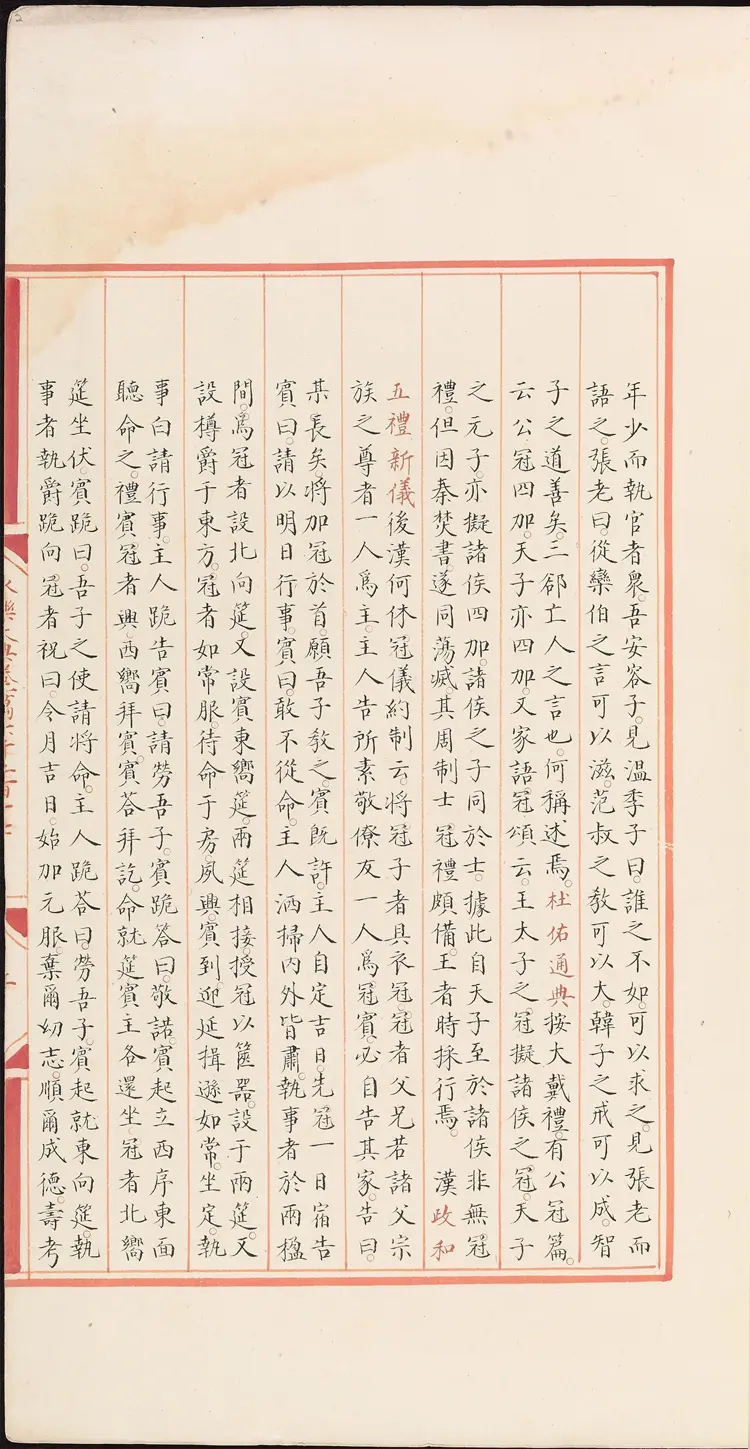 年少而執官者衆。吾安容子。見溫季子曰。誰之不如。可以求之。見張老而
語之。張老曰。從欒伯之言可以滋。范叔之敎可以大。韓子之戒可以成。智
子之道善矣。三郤亡人之言也。何稱述焉。杜佑通典按大戴禮。有公冠篇。
云公冠四加。天子亦四加。又家語冠頌云。王太子之冠擬諸侯之冠。天子
之元子。亦擬諸侯四加。諸侯之子同於士。據此自天子至於諸侯非無冠
禮。但因秦焚書。遂同蕩滅。其周制士冠禮頗備。王者時採行焉。 漢政和
五禮新儀後漢何休冠儀約制云。將冠子者具衣冠。冠者父兄若諸父宗
族之尊者一人爲主。主人告所素敬僚友一人爲冠賓。必自告其家。告曰。
某長矣。將加冠於首。願吾子敎之。賓旣許。主人自定吉日。先冠一日宿告
賓曰。請以明日行事。賓曰。敢不從命。主人洒掃內外皆肅。執事者於兩楹
間。爲冠者設北向筵。又設賓東嚮筵。兩筵相接。授冠以篋器。設于兩筵。又
設樽爵于東方。冠者如常服。待命于房。夙興。賓到。迎延揖遜如常。坐定。執
事白請行事。主人跪告賓曰。請勞吾子。賓跪答曰。敬諾。賓起立西序東面
聽命之。禮賓冠者興。西嚮拜賓。賓荅拜訖。命就筵。賓主各還坐。冠者北嚮
筵坐伏。賓跪曰。吾子之使請將命。主人跪荅曰。勞吾子。賓起就東向筵。執
事者執爵跪向冠者祝曰。令月吉日。始加元服。棄爾幼志。順爾成德。壽考